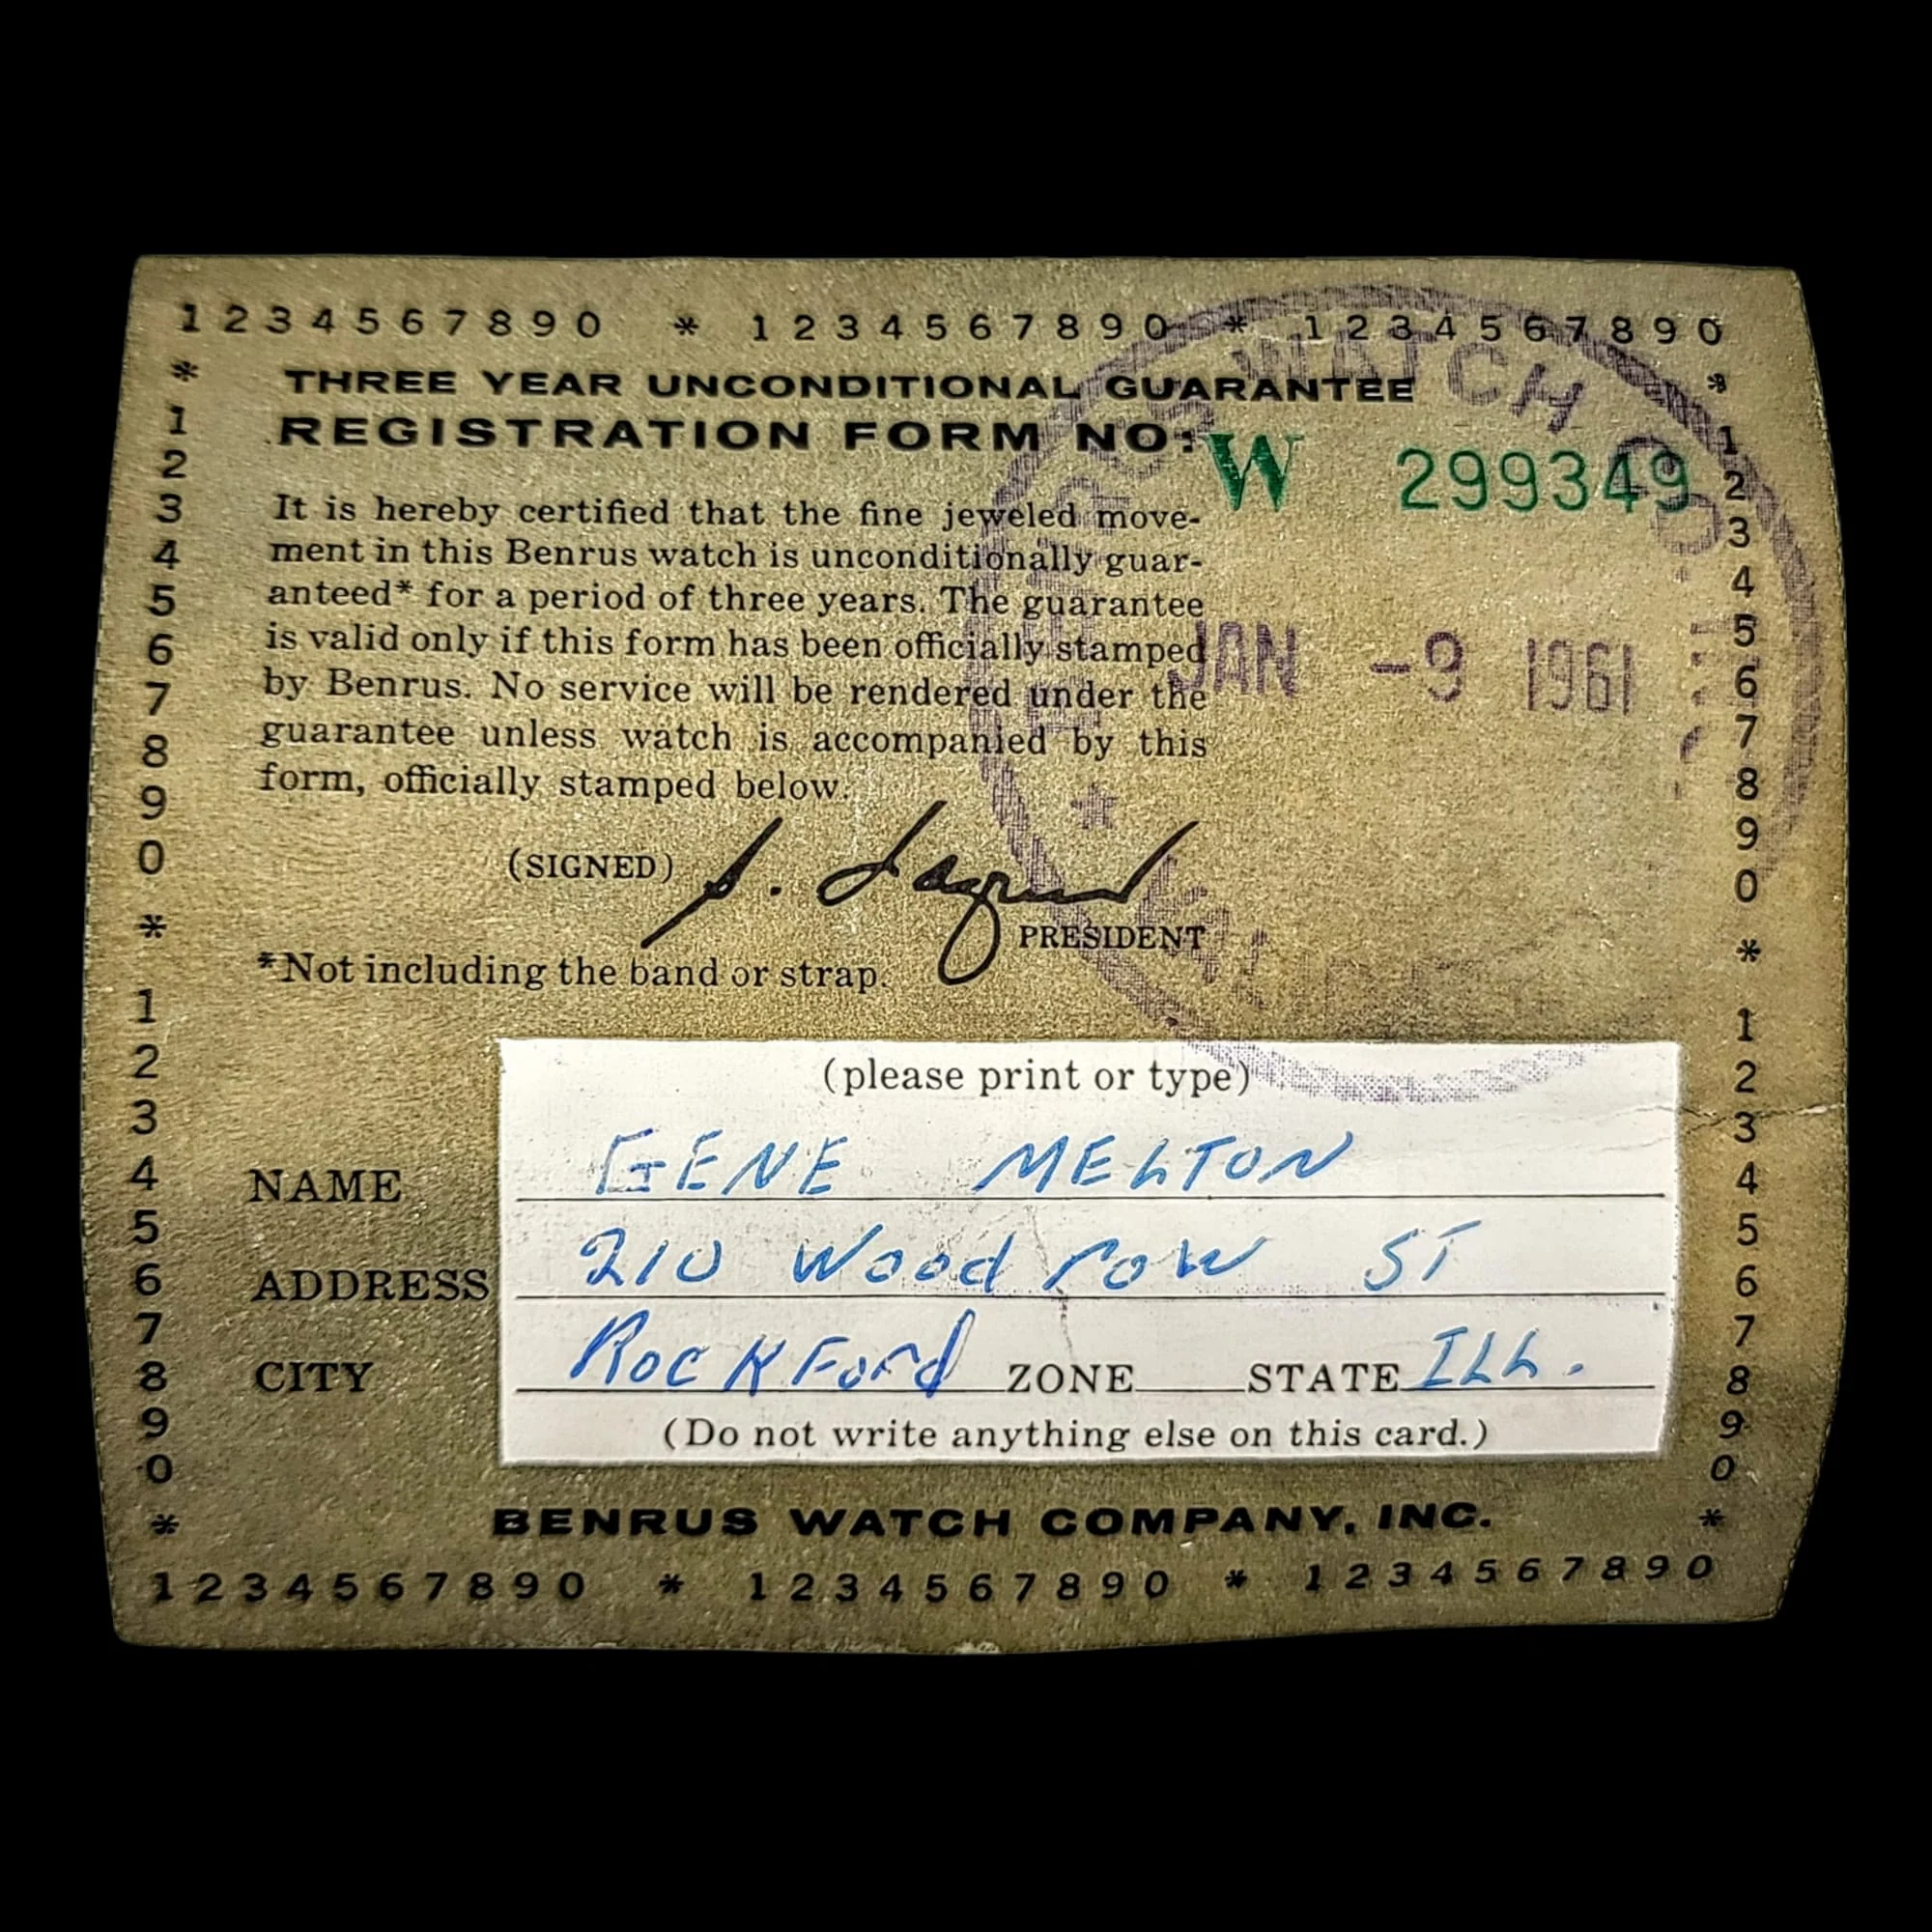 1 2 3 4 5 6 7 8 9 0 * 1 2 3 4 5 6 7 8 9 0 * 1 2 3 4 5 6 7 8 9 0
THREE YEAR UNCONDITIONAL GUARANTEE
REGISTRATION FORM NO: W 299349
It is hereby certified that the fine jeweled move-
ment in this Benrus watch is unconditionally guar-
anteed* for a period of three years. The guarantee
is valid only if this form has been officially stamped
by Benrus. No service will be rendered under the
guarantee unless watch is accompanied by this
form, officially stamped below.
BENRUS WATCH CO.
JAN -9 1961
(SIGNED) S. Lazrus
PRESIDENT
*Not including the band or strap.
(please print or type)
NAME GENE MELTON
ADDRESS 210 Woodrow ST
CITY RockFord ZONE STATE ILL.
(Do not write anything else on this card.)
BENRUS WATCH COMPANY, INC.
* 1 2 3 4 5 6 7 8 9 0 * 1 2 3 4 5 6 7 8 9 0 *
* 1 2 3 4 5 6 7 8 9 0 * 1 2 3 4 5 6 7 8 9 0 *
1 2 3 4 5 6 7 8 9 0 * 1 2 3 4 5 6 7 8 9 0 * 1 2 3 4 5 6 7 8 9 0